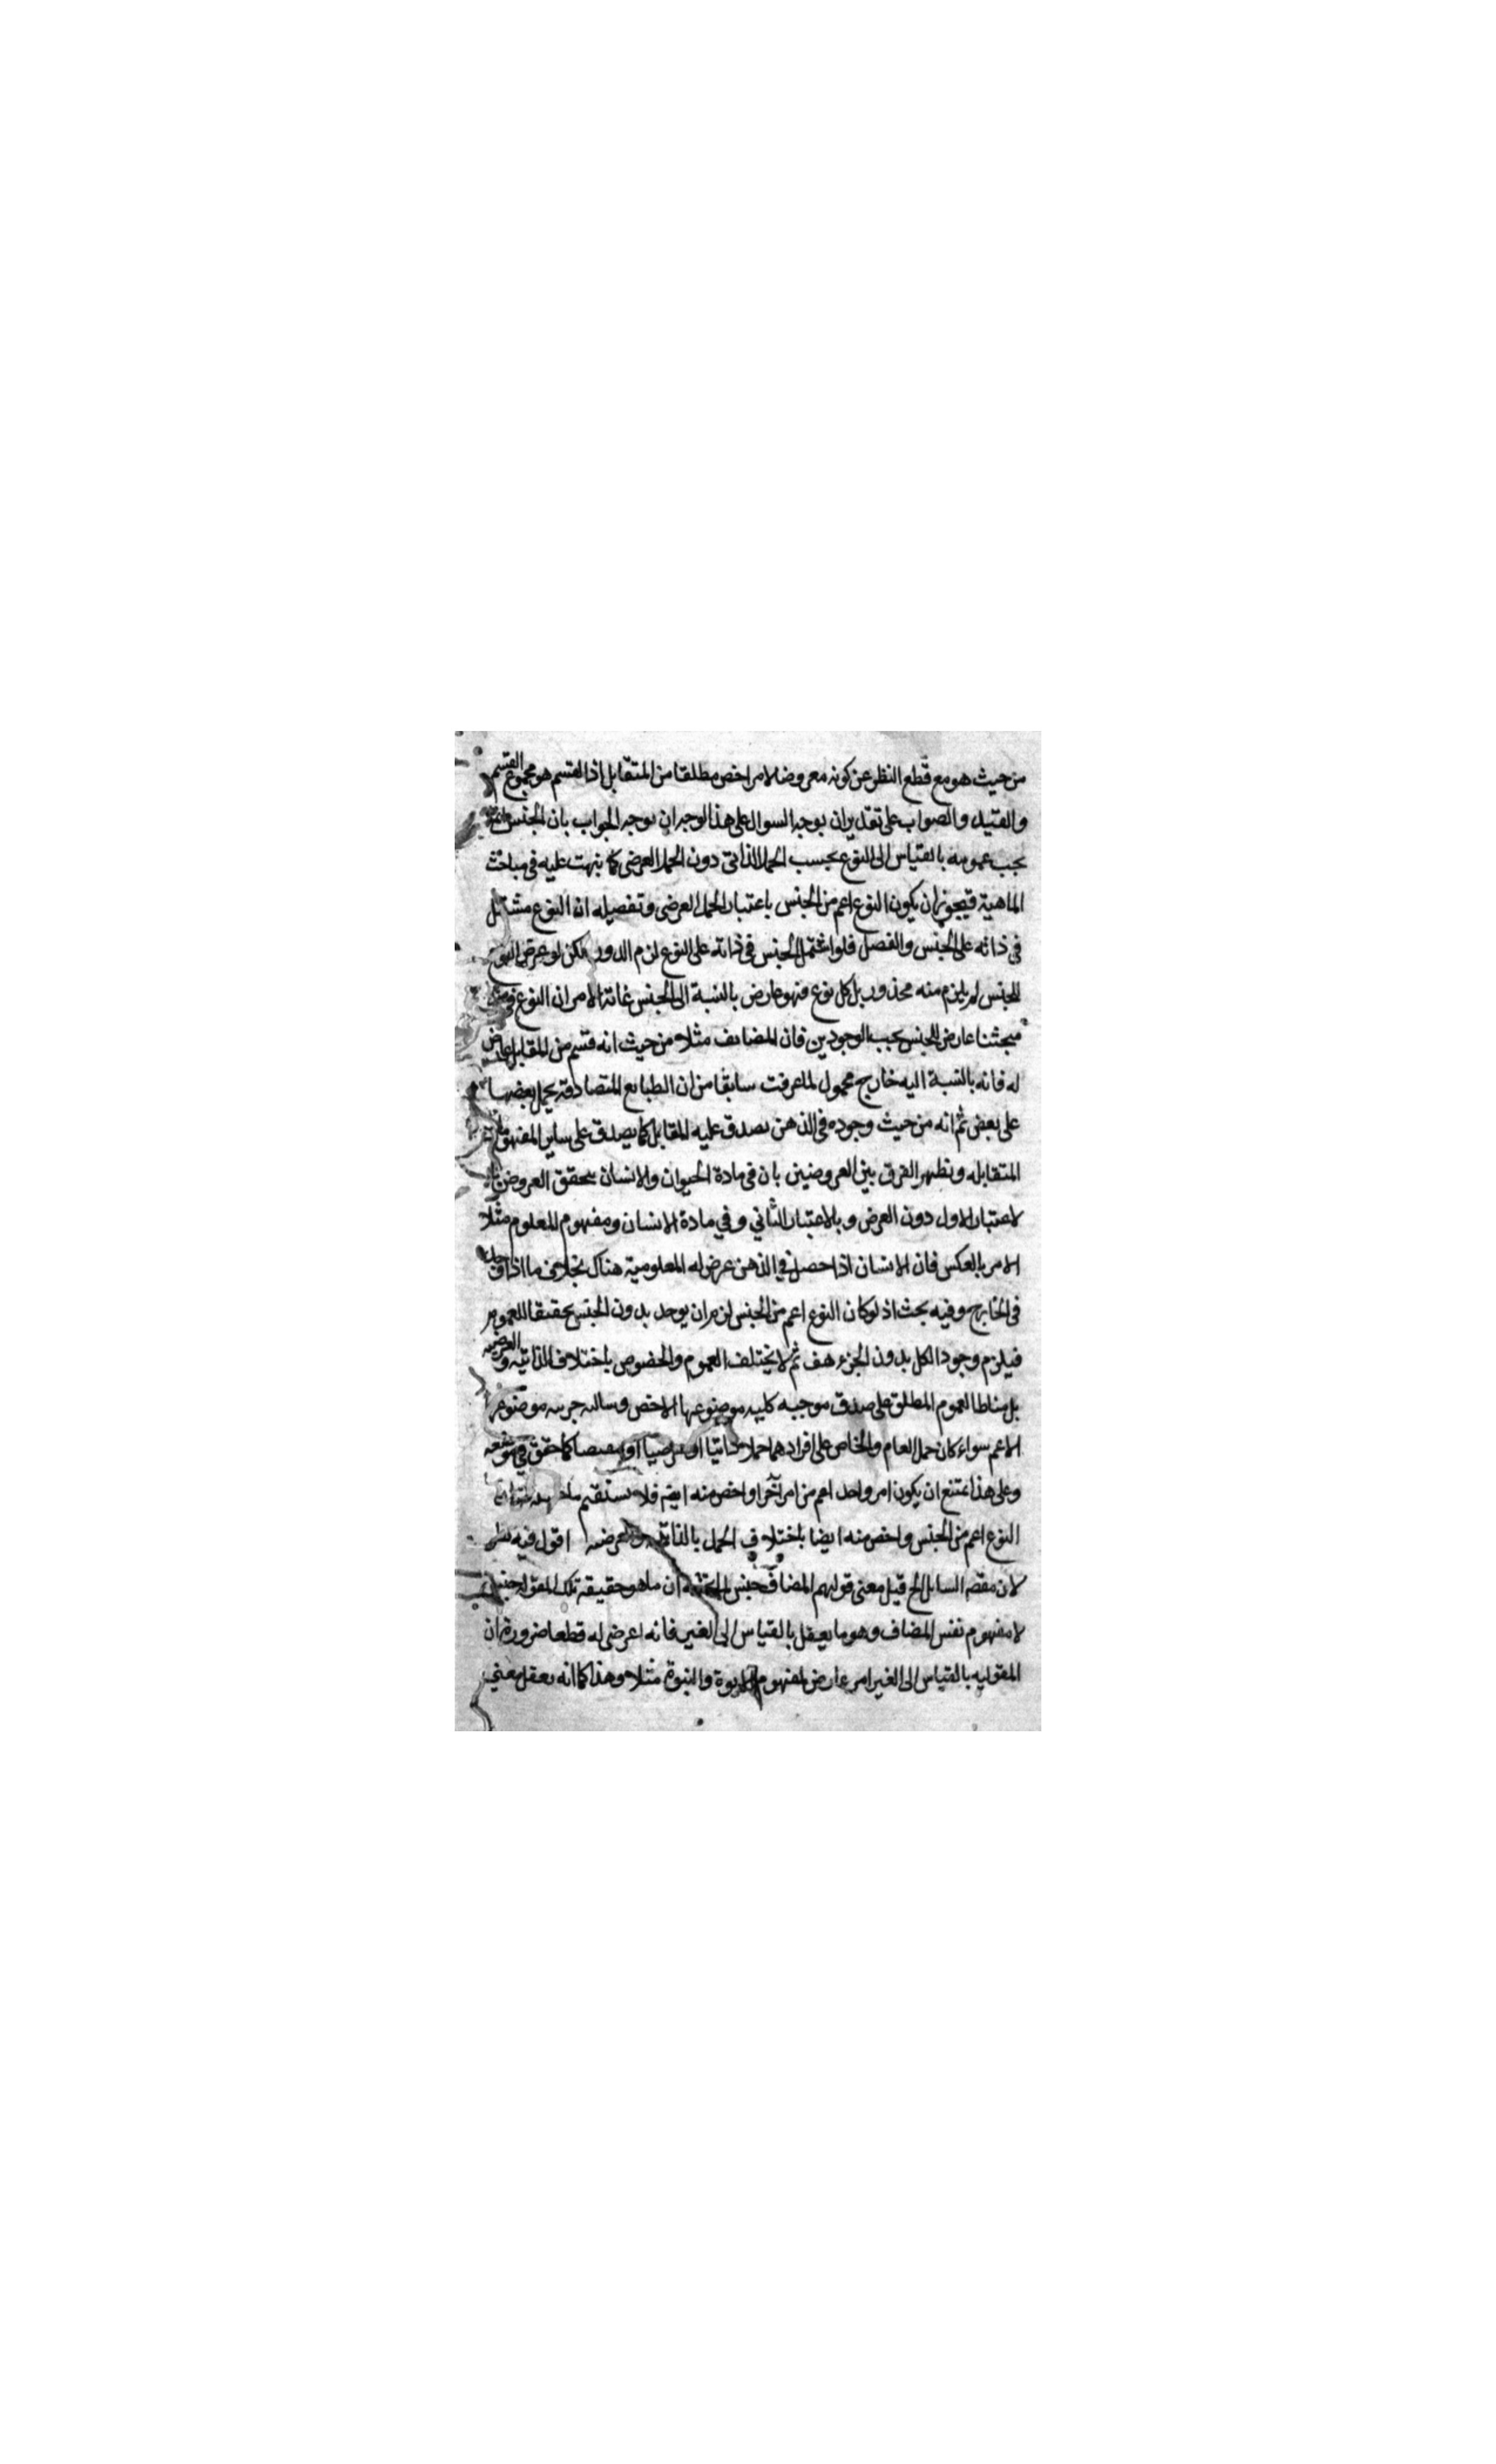 من حيث هو مع قطع النظر عن كونه معروضا لامر اخص مطلقا من المتقابل اذا القسم هو مجموع المقسم
والقيد والصواب على تقدير ان يوجه السوال على هذا الوجه ان يوجه الجواب بان الجنس
يجب عمومه بالقياس الى النوع بحسب الحمل الذاتى دون الحمل العرضى كما نبهت عليه فى مباحث
الماهية فيجوز ان يكون النوع اعم من الجنس باعتبار الحمل العرضى وتفصيله ان النوع مشتمل
فى ذاته على الجنس والفصل فلو اشتمل الجنس فى ذاته على النوع لزم الدور لكن لو عرض النوع
للجنس لم يلزم منه محذور بل كل نوع فهو عارض بالنسبة الى الجنس غاية الامر ان النوع
مبحثنا عارض للجنس بحسب الوجودين فان المضايف مثلا من حيث انه قسم من المقابل عارض
له فانه بالنسبة اليه خارج محمول لما عرفت سابقا من ان الطبايع المتصادقة يحمل بعضها
على بعض ثم انه من حيث وجوده فى الذهن يصدق عليه المقابل كما يصدق على ساير المفهومات
المتقابله ويظهر الفرق بين العروضين بان فى مادة الحيوان والانسان يتحقق العروض
لاعتبار الاول دون العرض وبالاعتبار الثاني وفي مادة الانسان ومفهوم المعلوم مثلا
الامر بالعكس فان الانسان اذا حصل في الذهن عرض له المعلومية هناك بخلاف ما اذا وجد
فى الخارج وفيه بحث اذ لو كان النوع اعم من الجنس لزم ان يوجد بدون الجنس تحقيقا للعموم
فيلزم وجود الكل بدون الجزء هف ثم لا يختلف العموم والخصوص باختلاف الذاتيه والعرضيه
بل مناط العموم المطلق على صدق موجبه كليه موضوعها الاخص وسالبه جزييه موضوعها
الاعم سواء كان حمل العام والخاص على افرادهما حملا ذاتيا او عرضيا او كما حقق في موضعه
وعلى هذا يمتنع ان يكون امر واحد اعم من امر آخر او اخص منه ايضا فلا يستقيم
النوع اعم من الجنس واخص منه ايضا باختلاف الحمل بالذاتيه والعرضيه اقول فيه نظر
لان مقصد السايل الخ قيل معنى قولهم المضاف جنس ان ما هو حقيقة تلك المقوله جنس
لا مفهوم نفس المضاف وهو ما يعقل بالقياس الى الغير فانه اعرضى له قطعا ضرورة ان
المقوليه بالقياس الى الغير امر عارض لمفهوم الابوة والبنوة مثلا وهذا كما انه يعقل معنى